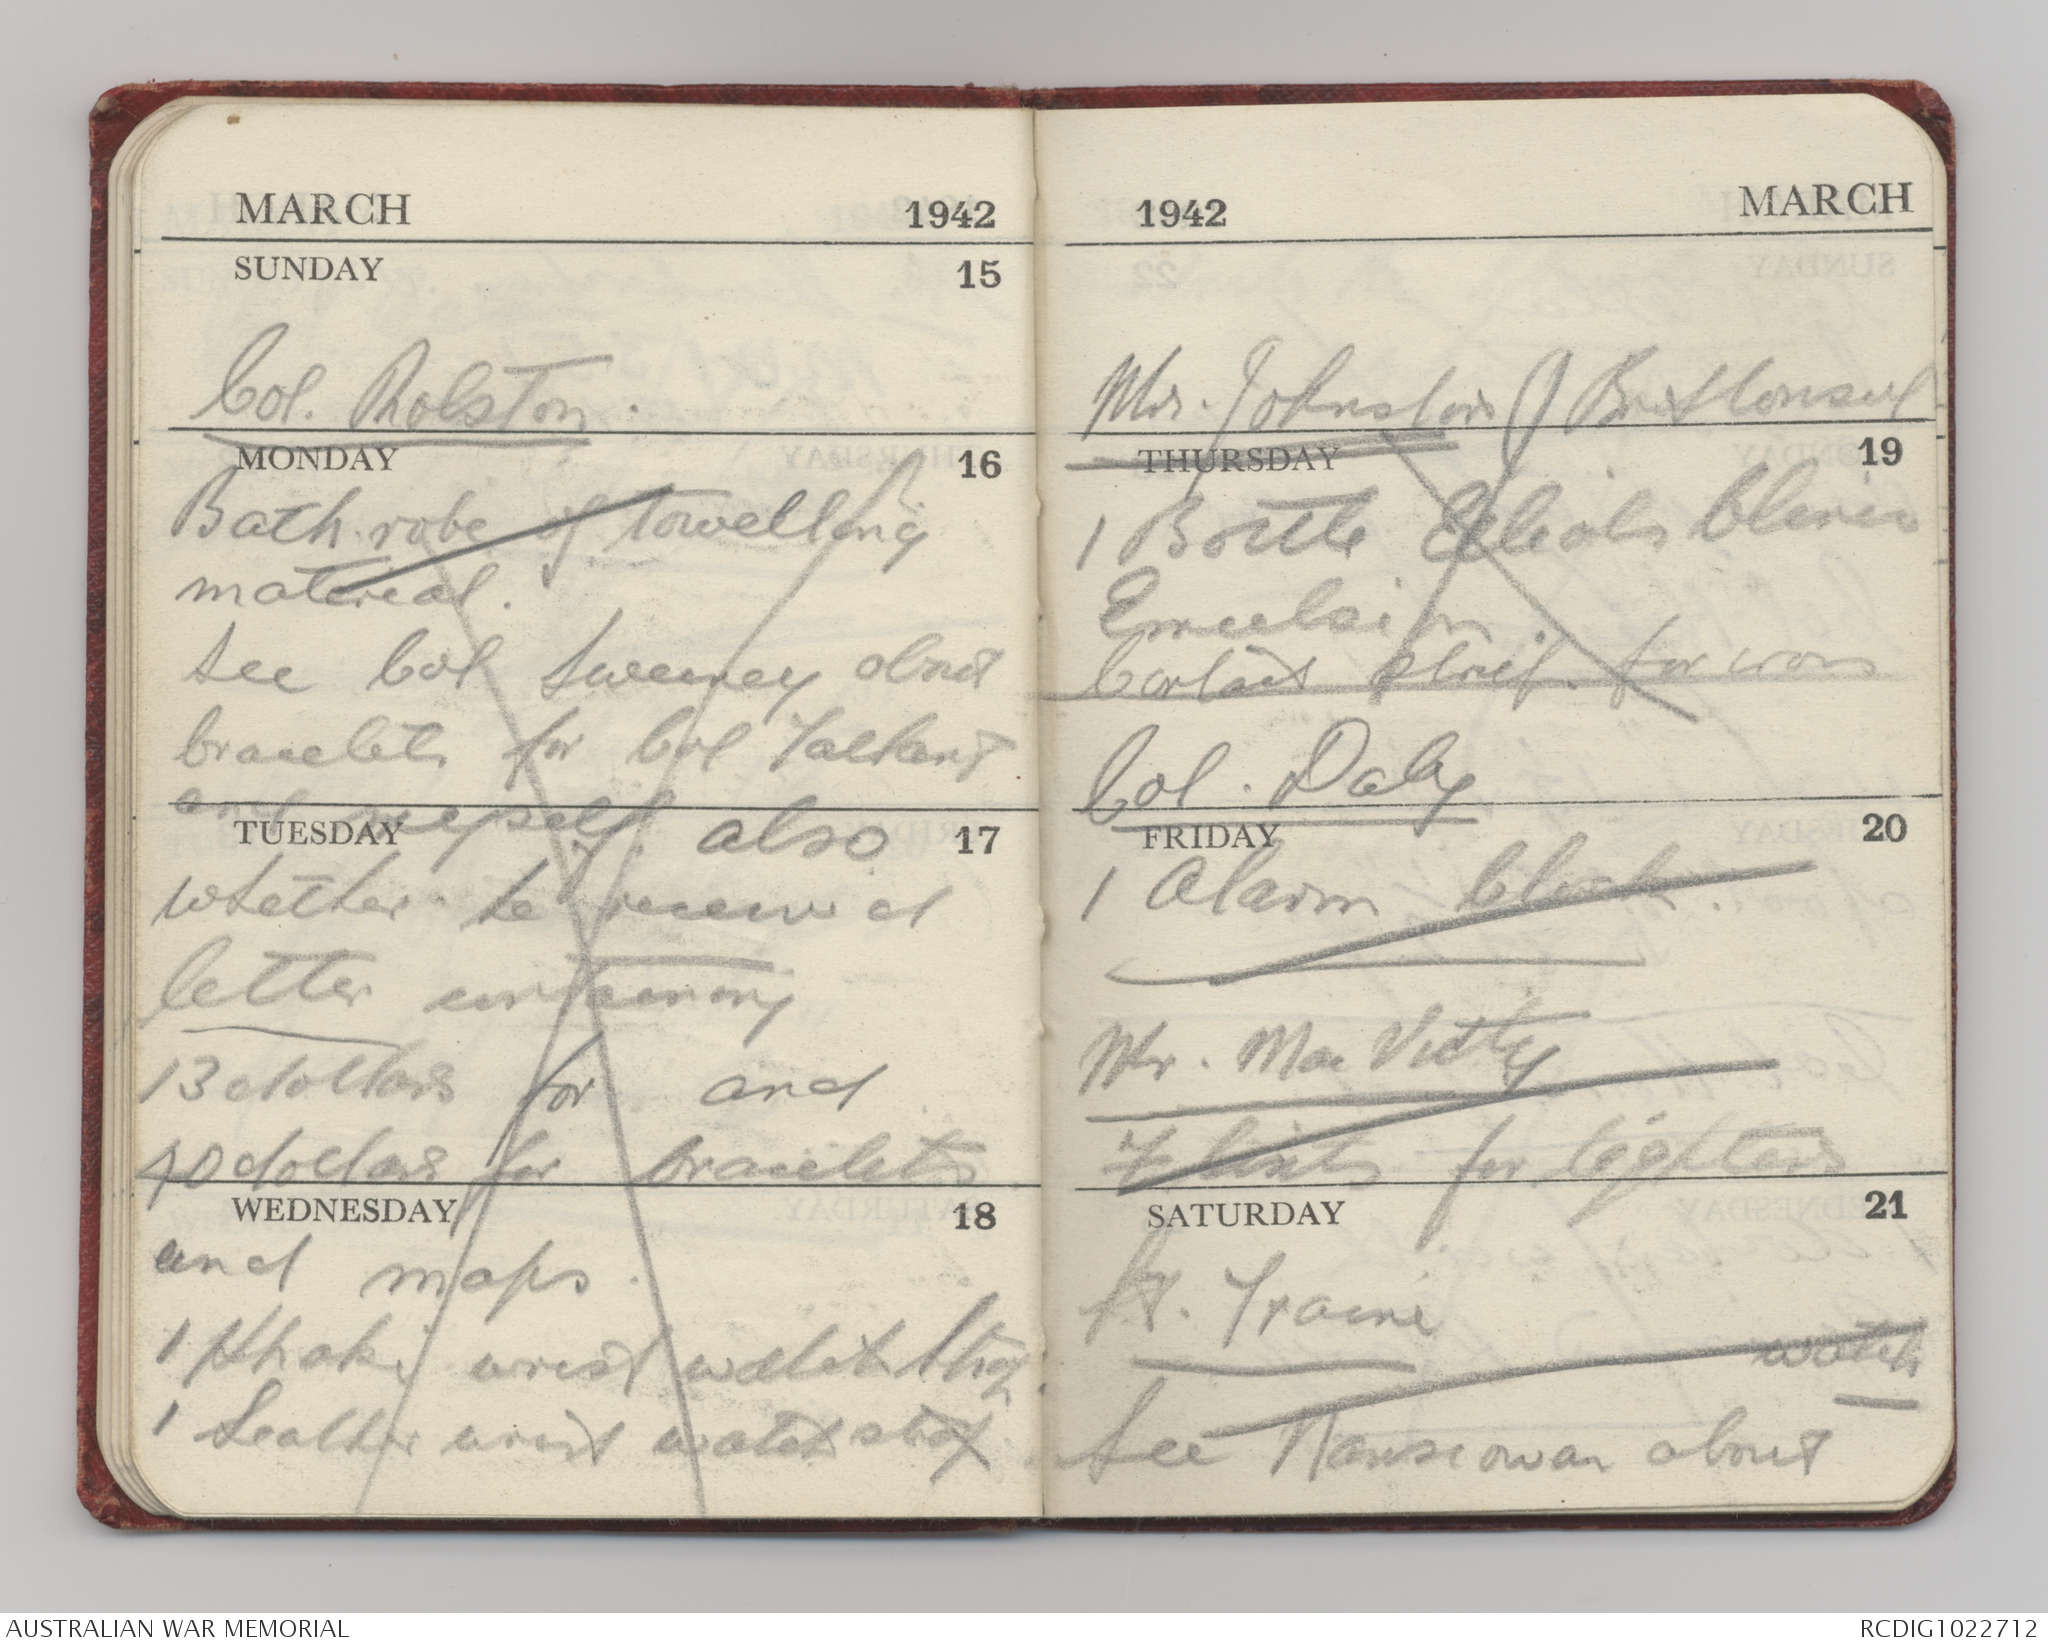 MARCH 1942
SUNDAY 15
Col. Rolston.
MONDAY 16
Bath robe of towelling
material.
See Col Sweeney about
bracelets for Col
and myself. also
TUESDAY 17
whether he received
letter containing
13 dollars for and
40 dollars for bracelets
WEDNESDAY 18
and maps.
1 Khaki wrist watch strap.
1 Leather wrist watch strap
1942 MARCH
Mr. Johnston
THURSDAY 19
1 Bottle
for
Col. Daly
FRIDAY 20
1 Alarm Clock.
Mr. MacVitty
Flints for lighters
SATURDAY 21
watch
See about
AUSTRALIAN WAR MEMORIAL RCDIG1022712